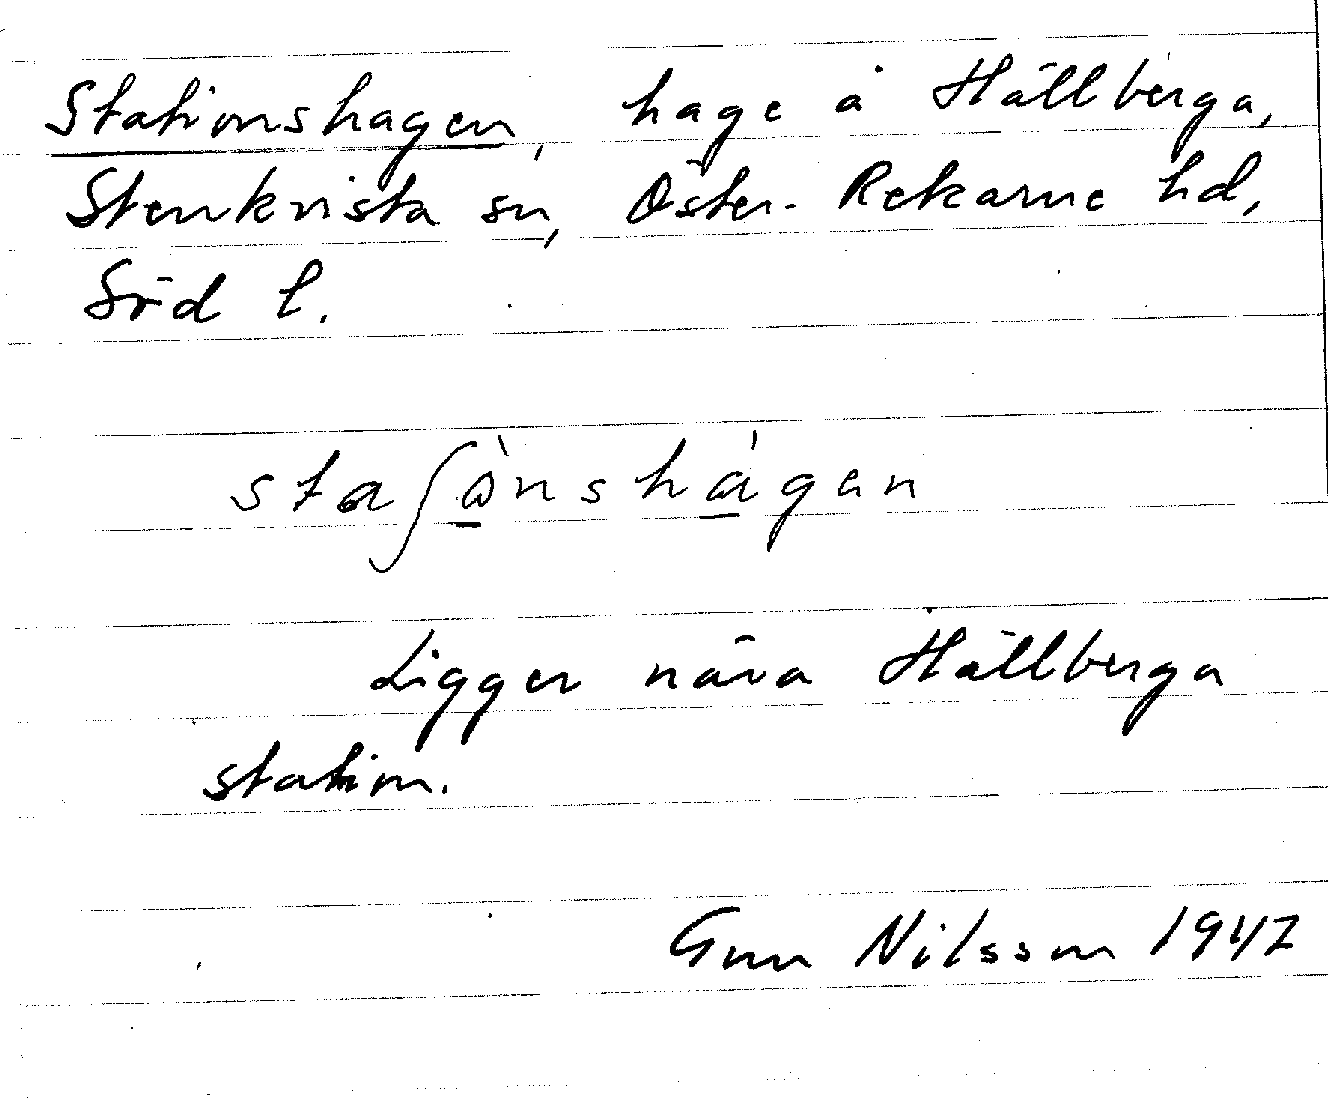 Stationshagen, hage å Hällberga,
Stenkvista sn, Öster-Rekarne hd,
Söd l.
staʃὼnshágan
Ligger nära Hällberga
station.
Gun Nilsson 1947